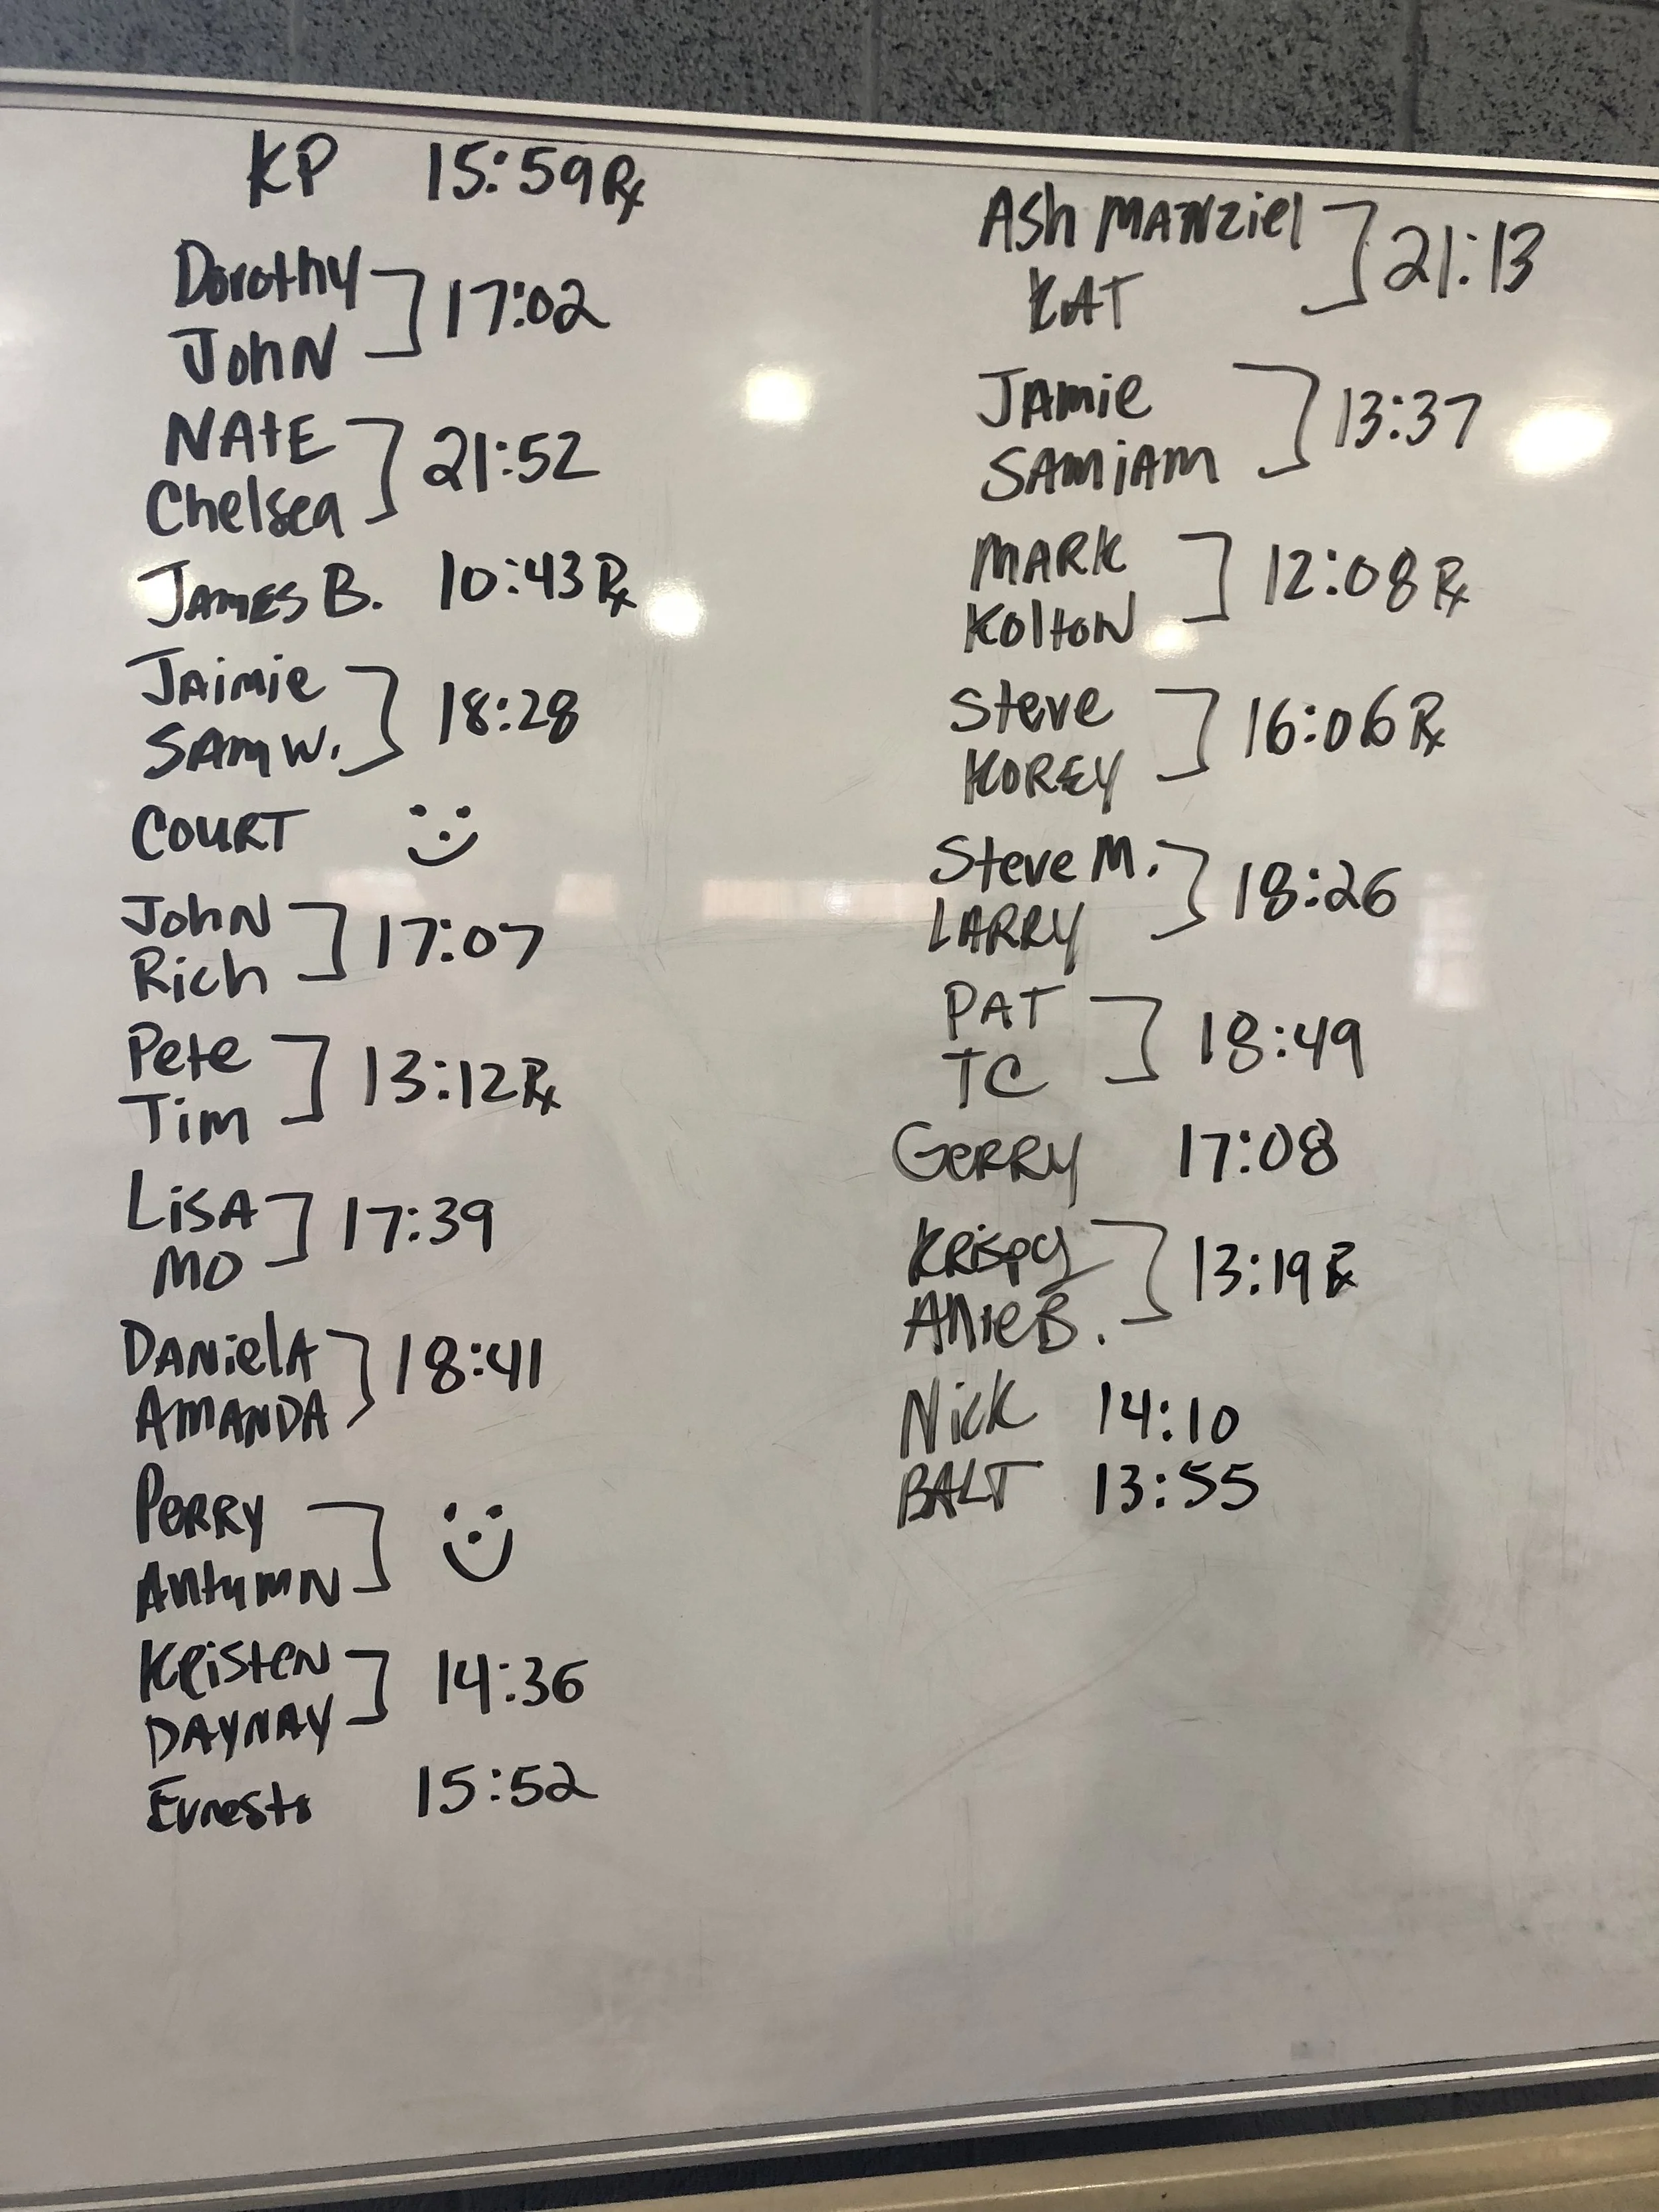 KP 15:59 Rx
Dorothy
John ] 17:02
Nate
Chelsea ] 21:52
James B. 10:43 Rx
Jaimie
Sam W. ] 18:28
Court
John
Rich ] 17:07
Pete
Tim ] 13:12 Rx
Lisa
Mo ] 17:39
Daniela
Amanda ] 18:41
Perry
Autumn ]
Kristen
Daynay ] 14:36
Ernesto 15:52
Ash Manziel
Kat ] 21:13
Jamie
Samiam ] 13:37
Mark
Kolton ] 12:08 Rx
Steve
Korey ] 16:06 Rx
Steve M.
Larry ] 18:26
Pat
TC ] 18:49
Gerry 17:08
Krispy
B. ] 13:19 Rx
Nick 14:10
Balt 13:55